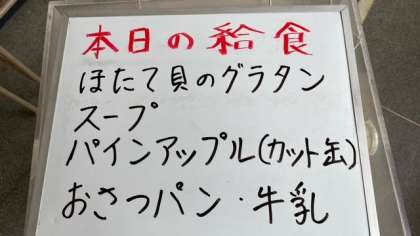 本日の給食
ほたて貝のグラタン
スープ
パインアップル(カット缶)
おさつパン・牛乳